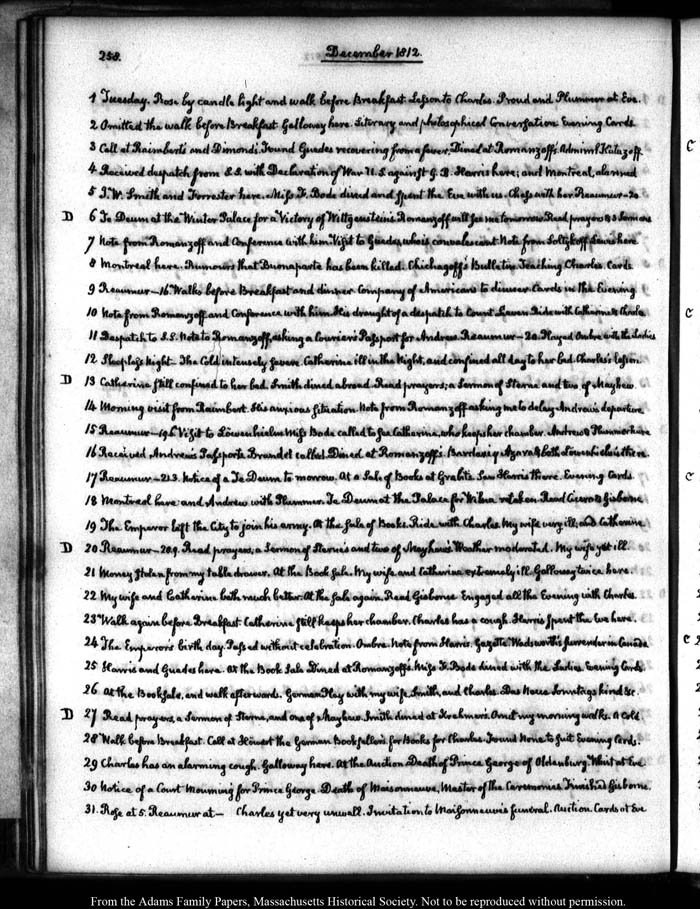 258.
December 1812.
1 Tuesday. Rose by candle light and walk before Breakfast. Lesson to Charles. Proud and Plummer at Eve.
2 Omitted the walk before Breakfast. Galloway here. Literary and philosophical Conversation. Evening Cards
3 Call at Raimbert's and Dimond's. Found Guedes recovering from a fever. Dined at Romanzoff's. Admiral Kutuzoff.
4 Received despatch from S.S. with Declaration of War U.S. against G.B. Harris here; and Montreal, alarmed
5 J. W. Smith and Forrester here. Miss F. Bode dined and spent the Eve with us. Chess with her Reaumur–20
D 6 Te Deum at the Winter Palace for a Victory of Wittgenstein's. Romanzoff will see me tomorrow. Read prayers & 3 Sermons
7 Note from Romanzoff and Conference with him. Visit to Guedes, who is convalescent. Note from Soltykoff. Lewis here
8 Montreal here. Rumours that Buonaparte has been killed. Chichagoff's Bulletin. Teaching Charles. Cards
9 Reaumur–16. Walks before Breakfast and dinner. Company of Americans to dinner. Cards in the Evening
10 Note from Romanzoff and Conference with him. His draught of a despatch to Count Lieven. Ride with Catherine & Charles
11 Despatch to S.S. Note to Romanzoff, asking a Courier's Passport for Andrew. Reaumur–20. Played Ombre with the Ladies
12 Sleepless Night. The Cold intensely severe. Catherine ill in the Night, and confined all day to her bed. Charles's lesson.
D 13 Catherine still confined to her bed. Smith dined abroad. Read prayers; a Sermon of Sterne and two of Mayhew.
14 Morning visit from Raimbert. His anxious situation. Note from Romanzoff asking me to delay Andrew's departure
15 Reaumur–19½ Visit to Löwenhielm. Miss Bode called to see Catherine, who keeps her chamber. Andrews & Plummer here
16 Received Andrew's Passports. Brandel called. Dined at Romanzoff's. Bardaxi y Azara & both Löwenhielm's there.
17 Reaumur–21½. Notice of a Te Deum to morrow. At a Sale of Books at Grabits. Saw Harris there. Evening Cards
18 Montreal here: and Andrew with Plummer. Te Deum at the Palace for Wilna retaken. Read Cicero & Gisborne
19 The Emperor left the City to join his army. At the Sale of Books. Ride with Charles. My wife very ill, and Catherine
D 20 Reaumur–20½. Read prayers, a Sermon of Sterne's and two of Mayhew's. Weather moderated. My wife yet ill.
21 Money stolen from my table drawer. At the Book Sale. My wife and Catherine extremely ill. Galloway twice here.
22 My wife and Catherine both much better. At the Sale again. Read Gisborne. Engaged all the Evening with Charles.
23 Walk again before Breakfast. Catherine still keeps her chamber. Charles has a cough. Harris spent the Eve here.
24 The Emperor's birth day. Passed without celebration. Ombre. Note from Harris. Gazette. Wadsworth's surrender in Canada
25 Harris and Guedes here. At the Book Sale. Dined at Romanzoff's. Miss F. Bode dined with the Ladies. Evening Cards.
26 At the Book Sale, and walk afterwards. German Play with my wife, Smith, and Charles. Das Neue Sonntags kind &c.
D 27 Read prayers, a Sermon of Sterne, and one of Mayhew. Smith dined at Krehmer's. Omit my morning walks. A Cold.
28 Walk before Breakfast. Call at the German Booksellers, for Books for Charles. Found None to suit. Evening Cards.
29 Charles has an alarming cough. Galloway here. At the Auction. Death of Prince George of Oldenburg. Whist at Eve
30 Notice of a Court Mourning for Prince George. Death of Maisonneuve, Master of the Ceremonies. Finished Gisborne.
31. Rose at 5. Reaumur at– Charles yet very unwell. Invitation to Maisonneuve's funeral. Auction. Cards at Eve
C
C
C
C
From the Adams Family Papers, Massachusetts Historical Society. Not to be reproduced without permission.